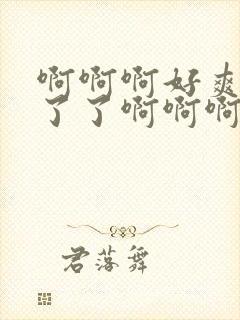 啊啊啊好爽
了了啊啊啊
君落舞